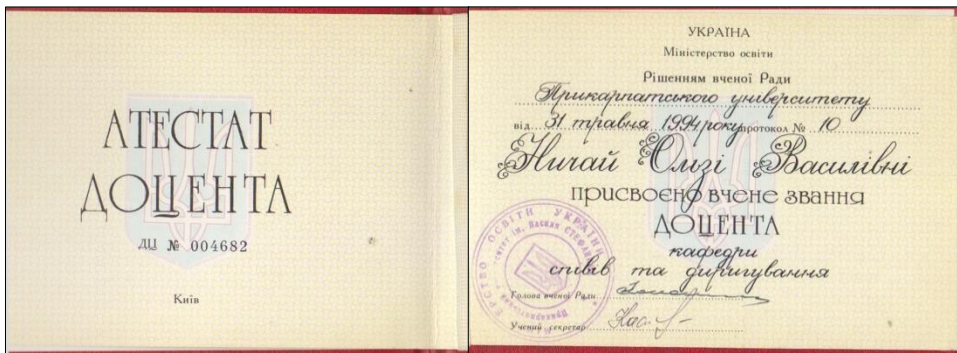 АТЕСТАТ
ДОЦЕНТА
ДЦ № 004682
Київ
УКРАЇНА
Міністерство освіти
Рішенням вченої Ради
Прикарпатського університету
від 31 травня 1994 року протокол № 10
Ничай Ользі Василівні
присвоєно вчене звання
ДОЦЕНТА
кафедри
співів та диригування
Голова вченої Ради
Учений секретар